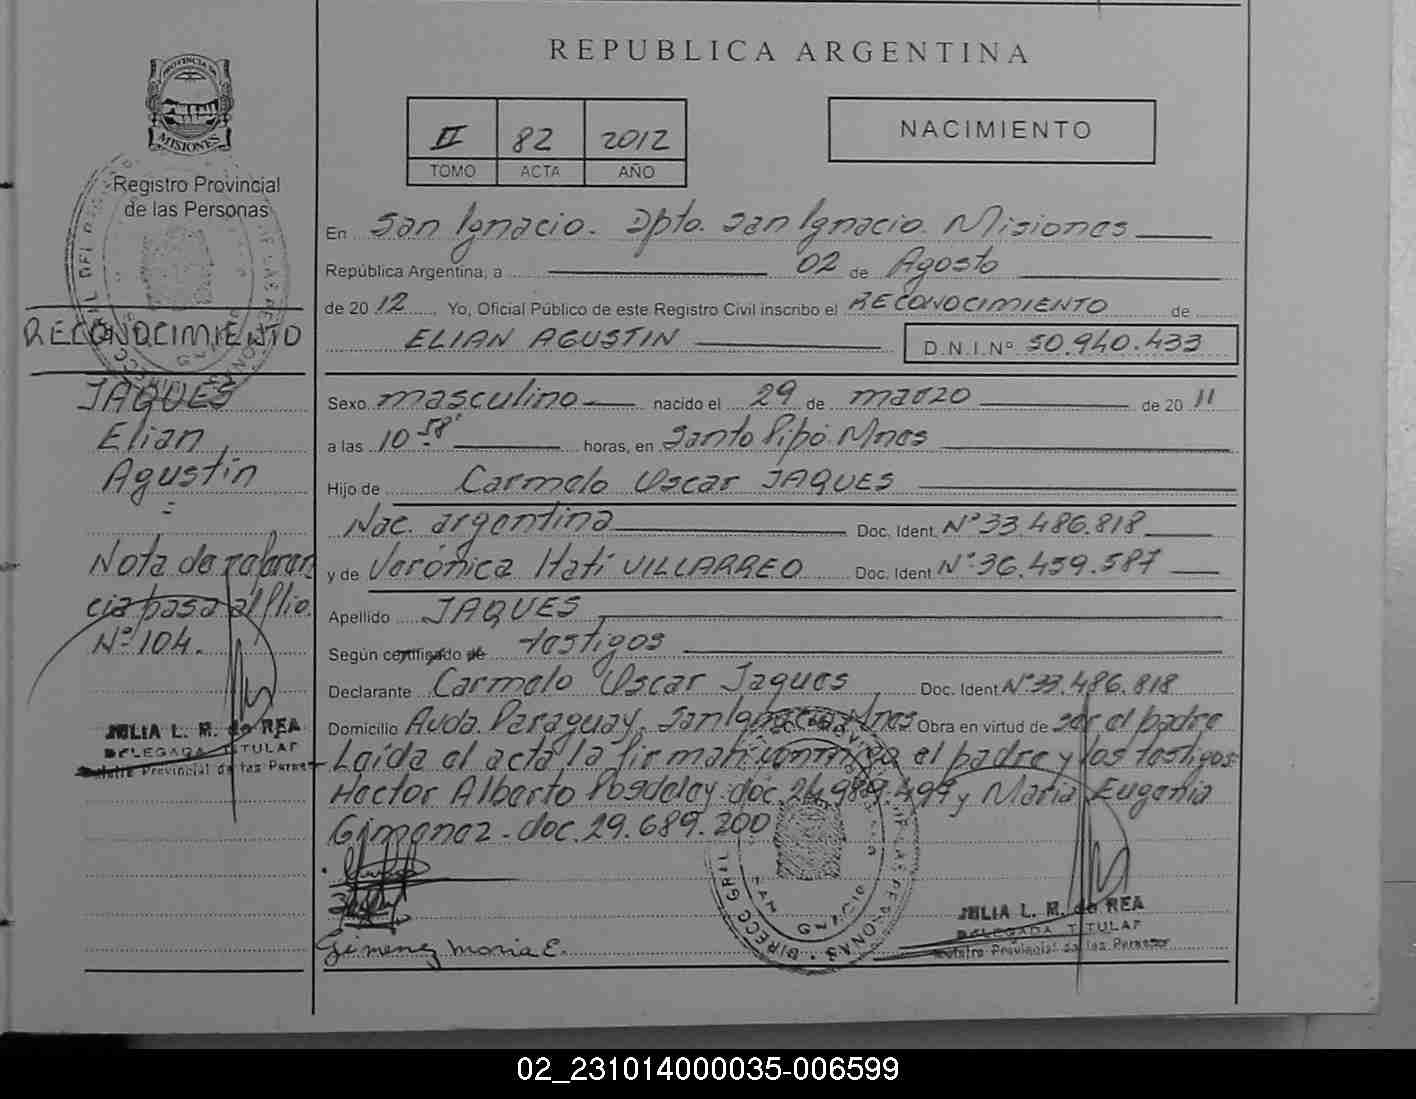 REPUBLICA ARGENTINA
PROVINCIA DE
MISIONES
Registro Provincial
de las Personas
RECONOCIMIENTO
JAQUES
Elian
Agustín
Nota de referen
cia pasa al flio.
Nº 104.
JULIA L. M. de REA
DELEGADA TITULAR
Registro Provincial de las Personas
II 82 2012
TOMO ACTA AÑO
NACIMIENTO
En San Ignacio. Dpto. San Ignacio. Misiones
República Argentina, a 02 de Agosto
de 2012. Yo, Oficial Público de este Registro Civil inscribo el RECONOCIMIENTO de
ELIAN AGUSTIN D.N.I.Nº 50.940.433
Sexo masculino nacido el 29 de marzo de 2011
a las 10 58' horas, en Santo Pipó Mnes
Hijo de Carmelo Oscar JAQUES
Nac. argentina Doc. Ident. Nº 33.486.818
y de Verónica Itatí VILLARREO Doc. Ident Nº 36.459.587
Apellido JAQUES
Según certificado de testigos
Declarante Carmelo Oscar Jaques Doc. Ident Nº 33.486.818
Domicilio Avda. Paraguay. San Ignacio Mnes Obra en virtud de ser el padre
Leída el acta la firman conmigo el padre y los testigos
Hector Alberto doc. 24.989.494 y María Eugenia
Gimenez - doc. 29.689.200
Gimenez Maria E.
SAN IGNACIO
JULIA L. M. de REA
DELEGADA TITULAR
Registro Provincial de las Personas
02_231014000035-006599